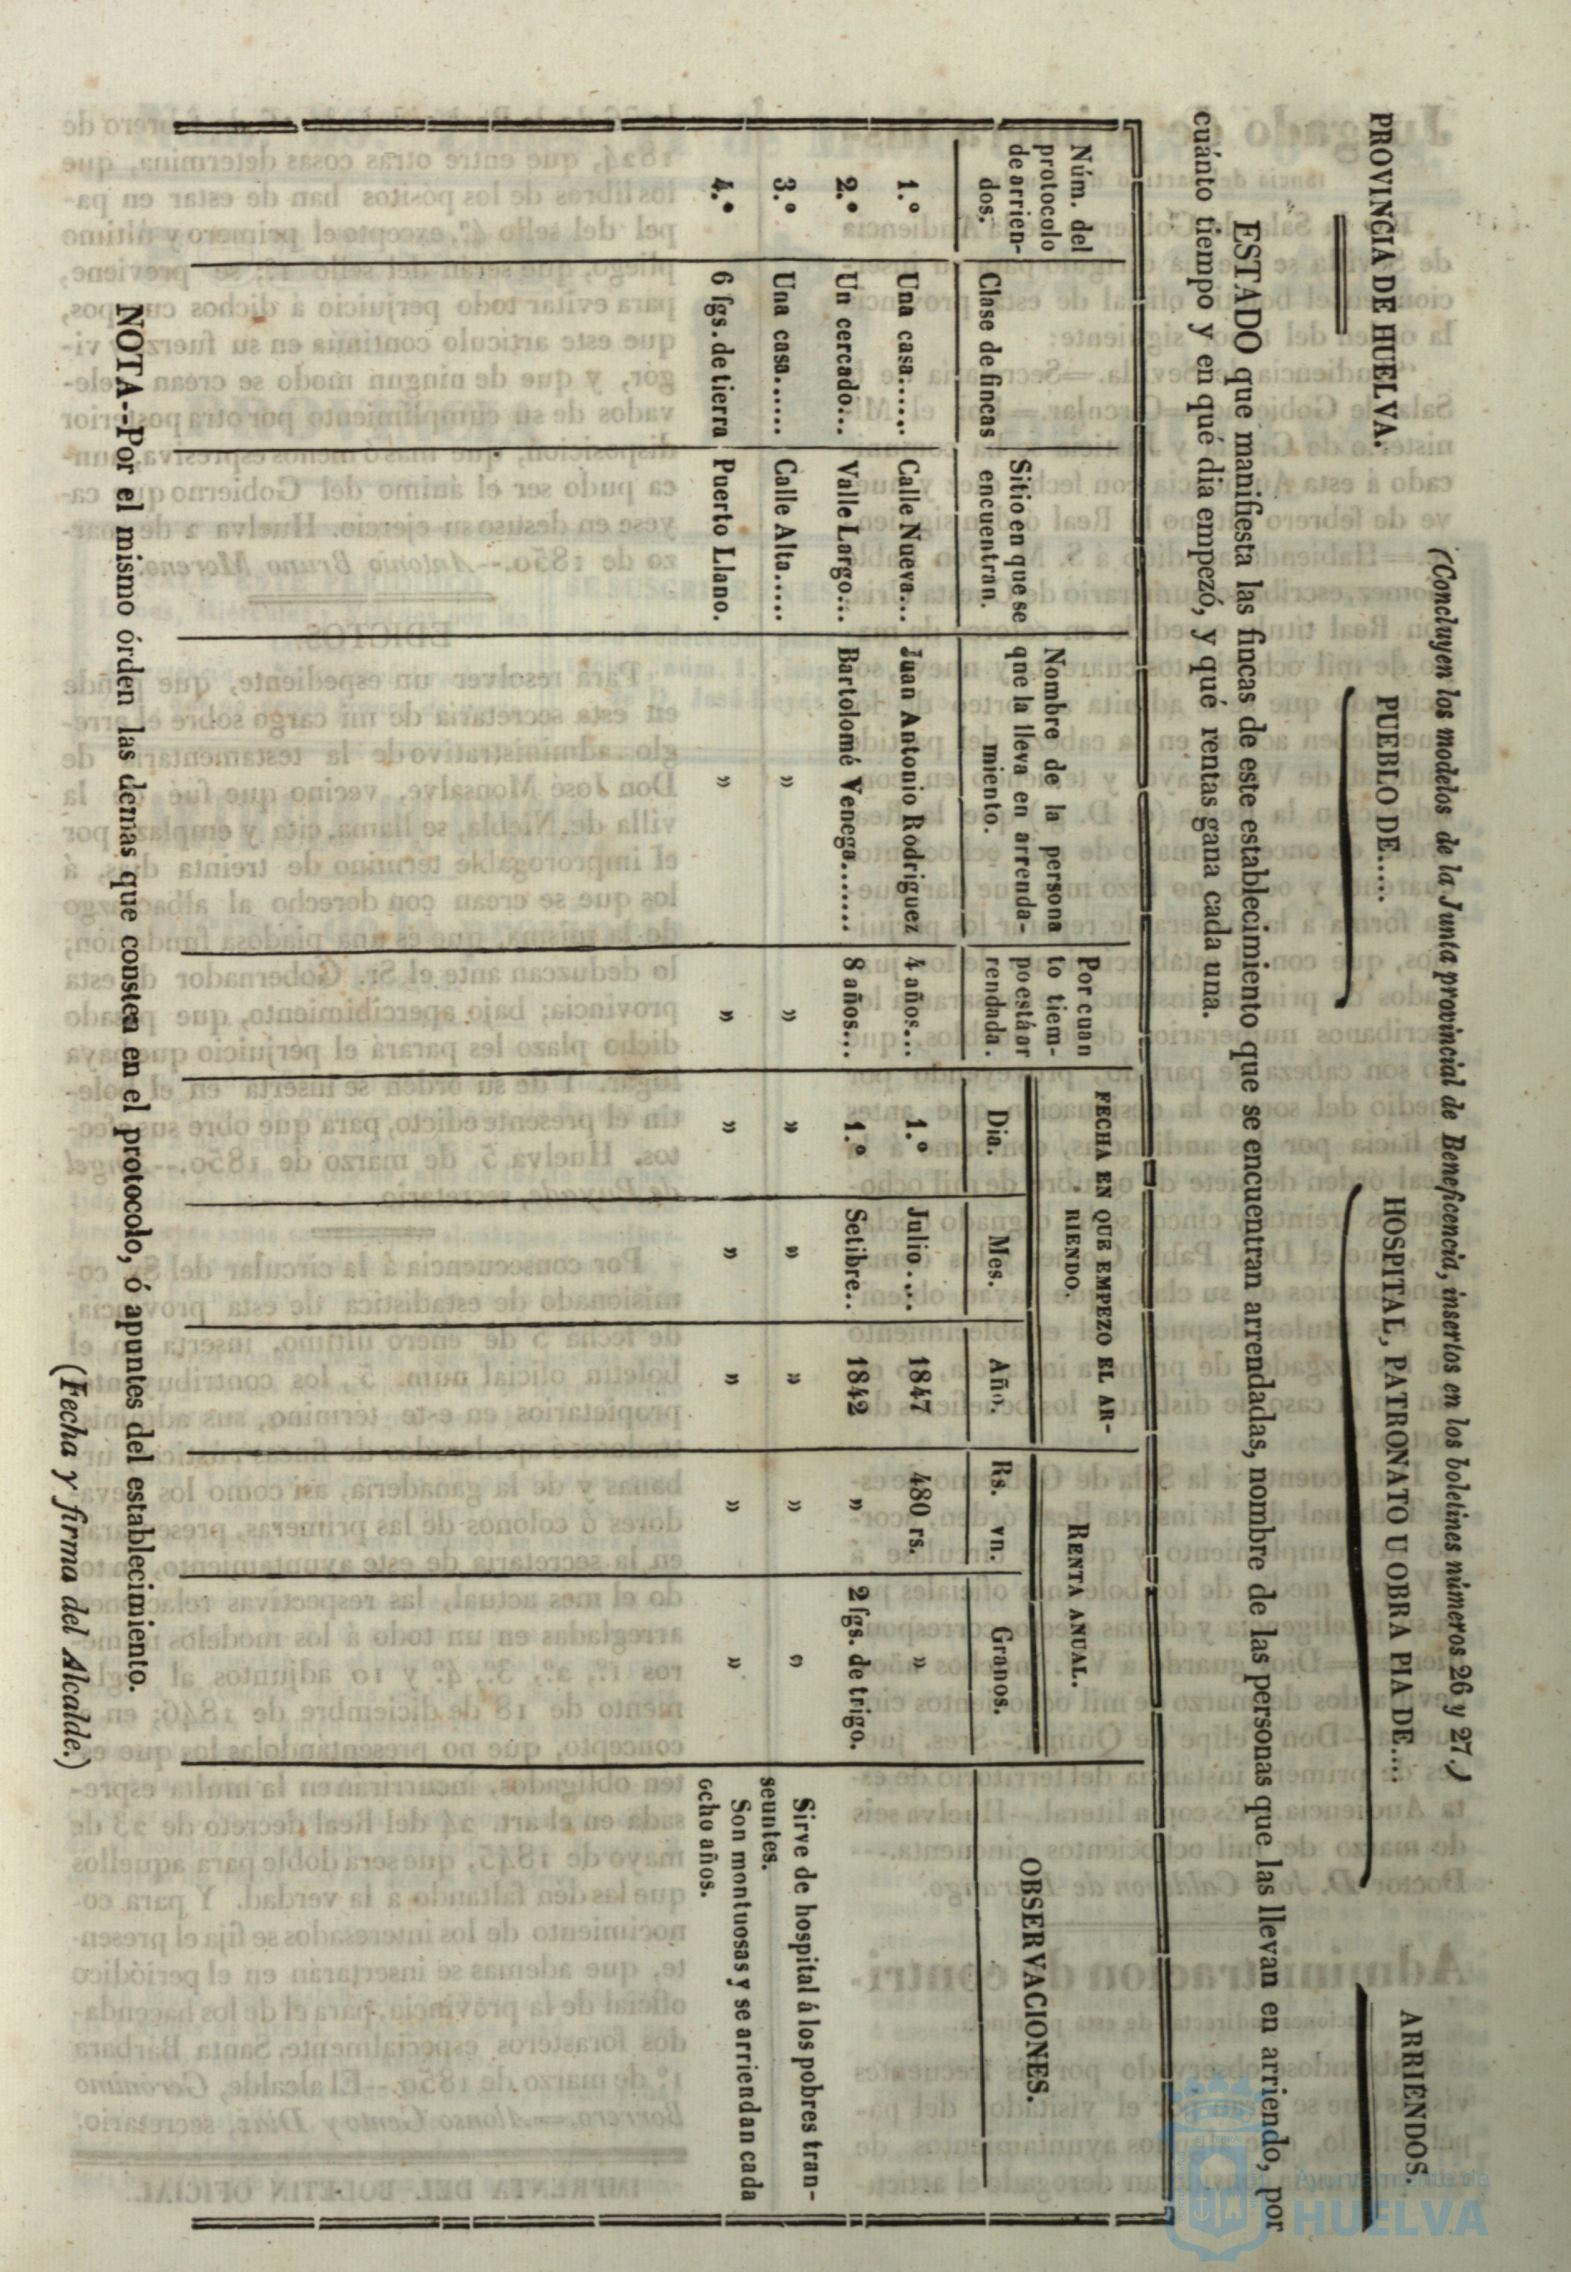 (Concluyen los modelos de la Junta provincial de Beneficencia, insertos en los boletines números 26 y 27.)
PROVINCIA DE HUELVA. PUEBLO DE..... HOSPITAL, PATRONATO U OBRA PIA DE.... ARRIENDOS.
ESTADO que manifiesta las fincas de este establecimiento que se encuentran arrendadas, nombre de las personas que las llevan en arriendo, por
cuánto tiempo y en qué dia empezó, y qué rentas gana cada una.
Núm. del
protocolo
de arrien-
dos.
Clase de fincas
Sitio en que se
encuentran.
Nombre de la persona
que la lleva en arrenda-
miento.
Por cuan
to tiem-
po está ar
rendada.
FECHA EN QUE EMPEZO EL AR-
RIENDO.
Dia. Mes. Año.
RENTA ANUAL.
Rs. vn. Granos.
OBSERVACIONES.
1.º Una casa...... Calle Nueva... Juan Antonio Rodriguez 4 años... 1.º Julio.... 1847 480 rs. »
2.º Un cercado... Valle Largo... Bartolomé Venega....... 8 años... 1.º Setibre.. 1842 » 2 fgs. de trigo.
3.º Una casa...... Calle Alta..... » » » » » » » Sirve de hospital á los pobres tran-
seuntes.
4.º 6 fgs. de tierra Puerto Llano. » » » » » » » Son montuosas y se arriendan cada
ocho años.
NOTA--Por el mismo órden las demas que consten en el protocolo, ó apuntes del establecimiento.
(Fecha y firma del Alcalde.)
Ayuntamiento de
HUELVA